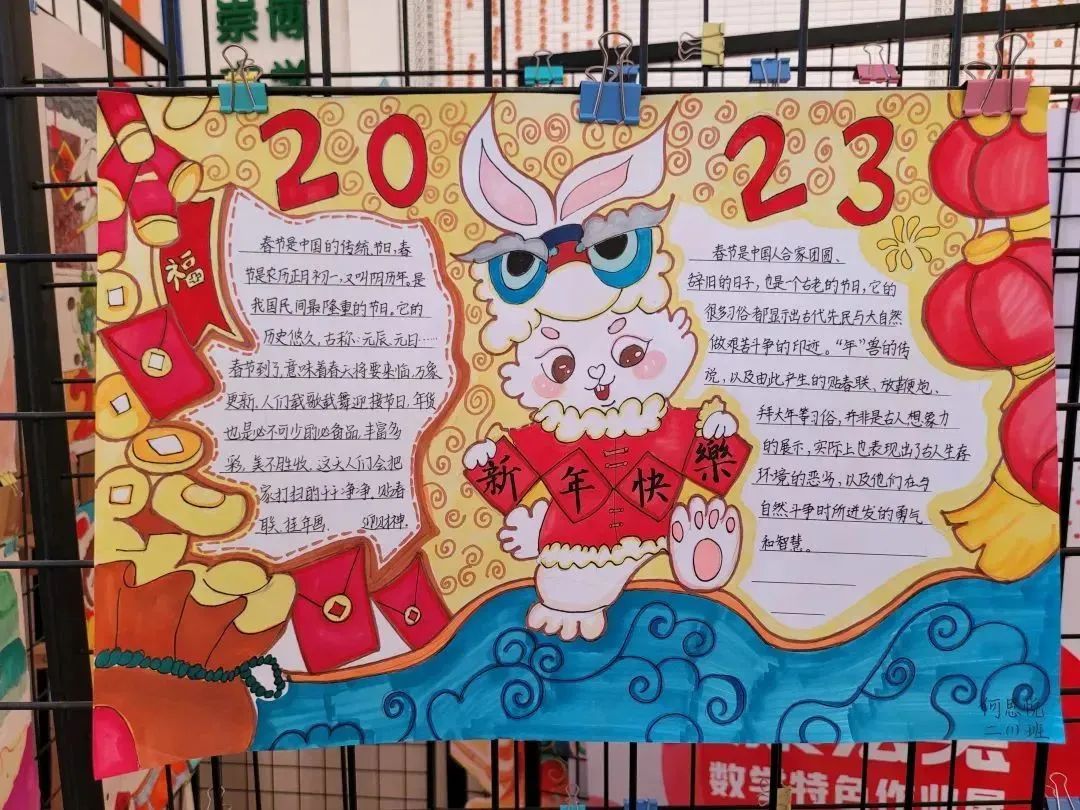 崇 博
学
2023
福
春节是中国的传统,节日,春
节是农历正月初一,又叫阴历年。是
我国民间最隆重的节日。它的
历史悠久,古称:元辰、元日……
春节到了,意味着春天将要来临,万象
更新,人们载歌载舞迎接节日,年货
也是必不可少的必备品,丰富多
彩,美不胜收,这天人们会把
家打扫的干干净净,贴春
联,挂年画,迎财神。
新年快樂
春节是中国人合家团圆、
辞旧的日子,也是一个古老的节日,它的
很多习俗都显示出古代先民与大自然
做艰苦斗争的印迹。“年”兽的传
说,以及由此产生的贴春联、放鞭炮、
拜大年等习俗,并非是古人想象力
的展示,实际上也表现出了古人生存
环境的恶劣,以及他们在与
自然斗争时所迸发的勇气
和智慧。
何思
二(1)班
数学特色作业展